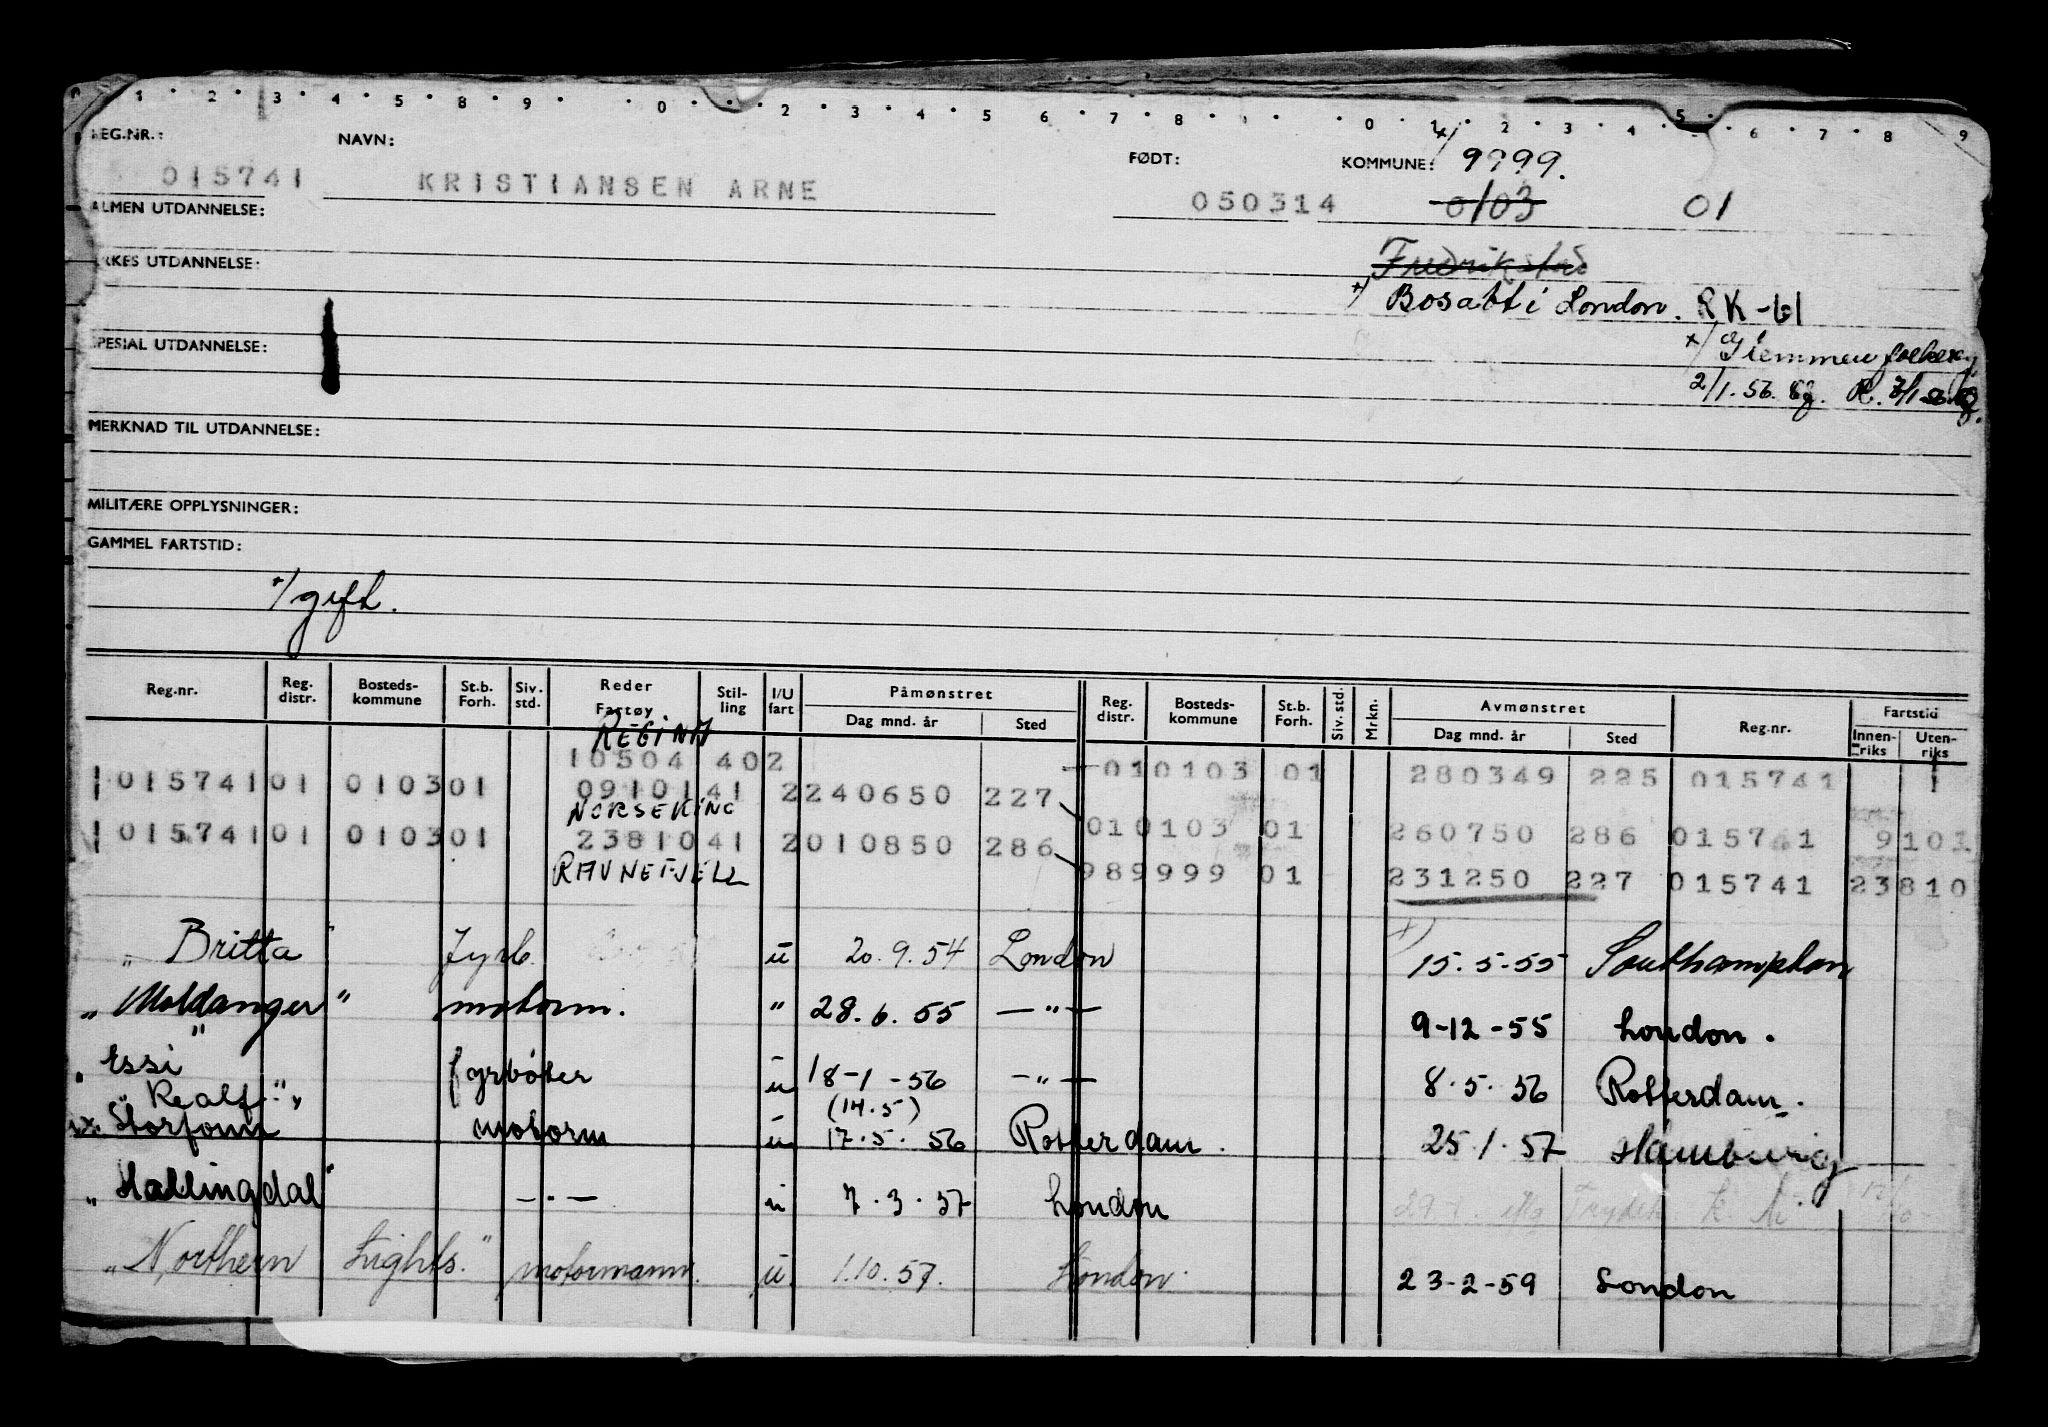 0 1 2 3 4 5 8 9 0 2 3 4 5 6 7 8 0 1 2 3 4 5 6 7 8 9
REG.NR.: NAVN: FØDT: KOMMUNE: x/ 9999.
015741 KRISTIANSEN ARNE 050314 0103 01
ALMEN UTDANNELSE:
Fredrikstad
YRKES UTDANNELSE:
x/ Bosatt i London. RK-61
x/ Glemmen
SPESIAL UTDANNELSE:
2/1.56.
MERKNAD TIL UTDANNELSE:
MILITÆRE OPPLYSNINGER:
GAMMEL FARTSTID:
x/ gift.
Reg.nr. Reg. distr. Bosteds-kommune St.b. Forh. Siv. std. Reder Fartøy Stil-ling I/U fart Påmønstret Dag mnd. år Sted Reg. distr. Bosteds-kommune St.b. Forh. Siv. std. Mrkn. Avmønstret Dag mnd. år Sted Reg.nr. Fartstid Innen-riks Uten-riks
REGINA
10504 402 010103 01 280349 225 015741
1 015741 01 0103 01 09101 41 2 240650 227
NORSE KING
010103 01 260750 286 015741 9101
1 015741 01 0103 01 23810 41 2 010850 286
RAVNEFJELL
989999 01 231250 227 015741 23810
„Britta" Fyrb. u 20.9.54 London x) 15.5-55 Southampton
„Moldanger" motorm. " 28.6.55 —"— 9-12-55 London.
„Essi" fyrbøter u 18-1-56 —"— 8.5.56 Rotterdam.
"Realf"
(14.5)
Storfonn motorm u 17.5.56 Rotterdam. 25.1.57 Hamburg
„Hallingdal" —.— u 7.3.57 London
„Northern Lights." motormann. u 1.10.57. London. 23-2-59 London